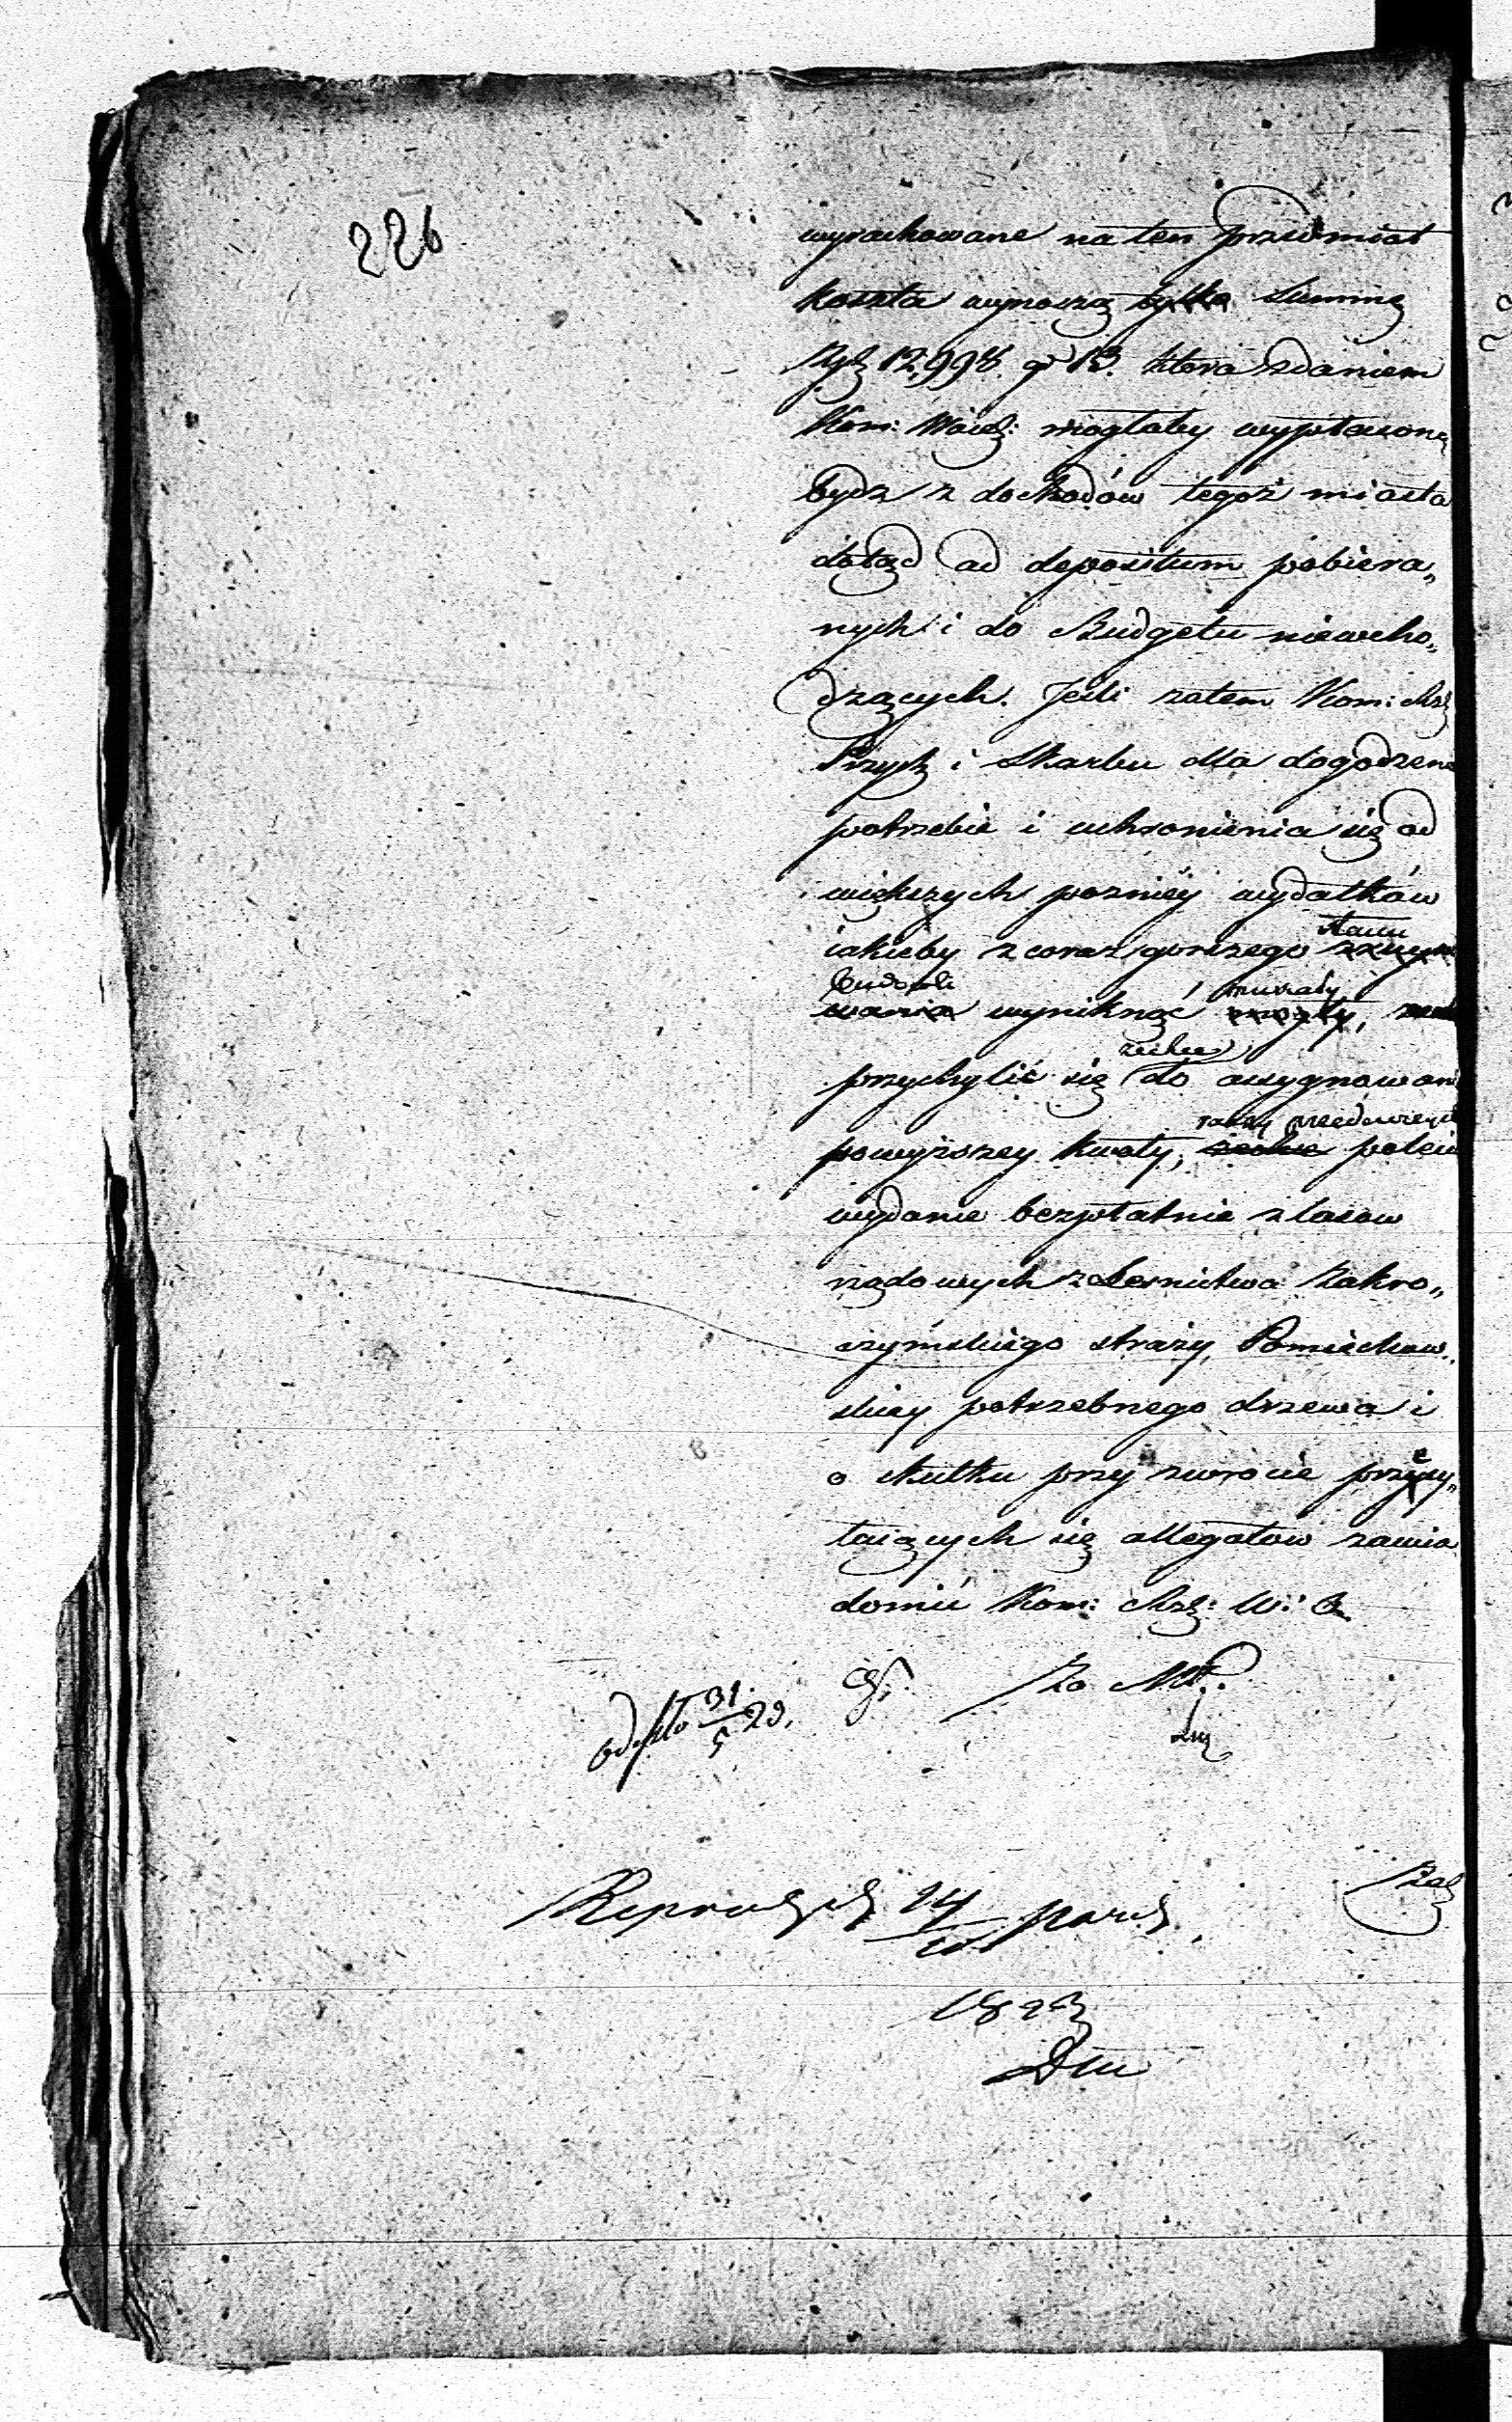 226
wyrachowane na ten przedmiot
koszta wynoszą tylko Summę
Złp 12,998 gr 13. która zdaniem
Kom: Wdzk: mogłaby wypłaconą
bydź z dochodów tegoż miasta
dotąd ad depositum pobiera„
nych i do Budgetu niewcho„
dzących. Jeśli zatem Kom: Rzą
Przych i Skarbu dla dogodzenia
potrzebie i uchronienia się od
większych pozniéy wydatków
stanu
iakieby z coraz gorszego
budowli musiały
wania wyniknąć mogły,
zechce
przychylić się do assygnowani
raczy
powyższey kwoty, zechce poleci
wydanie bezpłatnie z lasow
rządowych z Leśnictwa Zakro„
czymskiego straży Pomiechow„
skiey potrzebnego drzewa i
o skutku przy zwrocie przyłą„
taiących się allegatow zawia
domić Kom: Rzą: W: 
Za M.P.
odeszło 31/5 29.
24